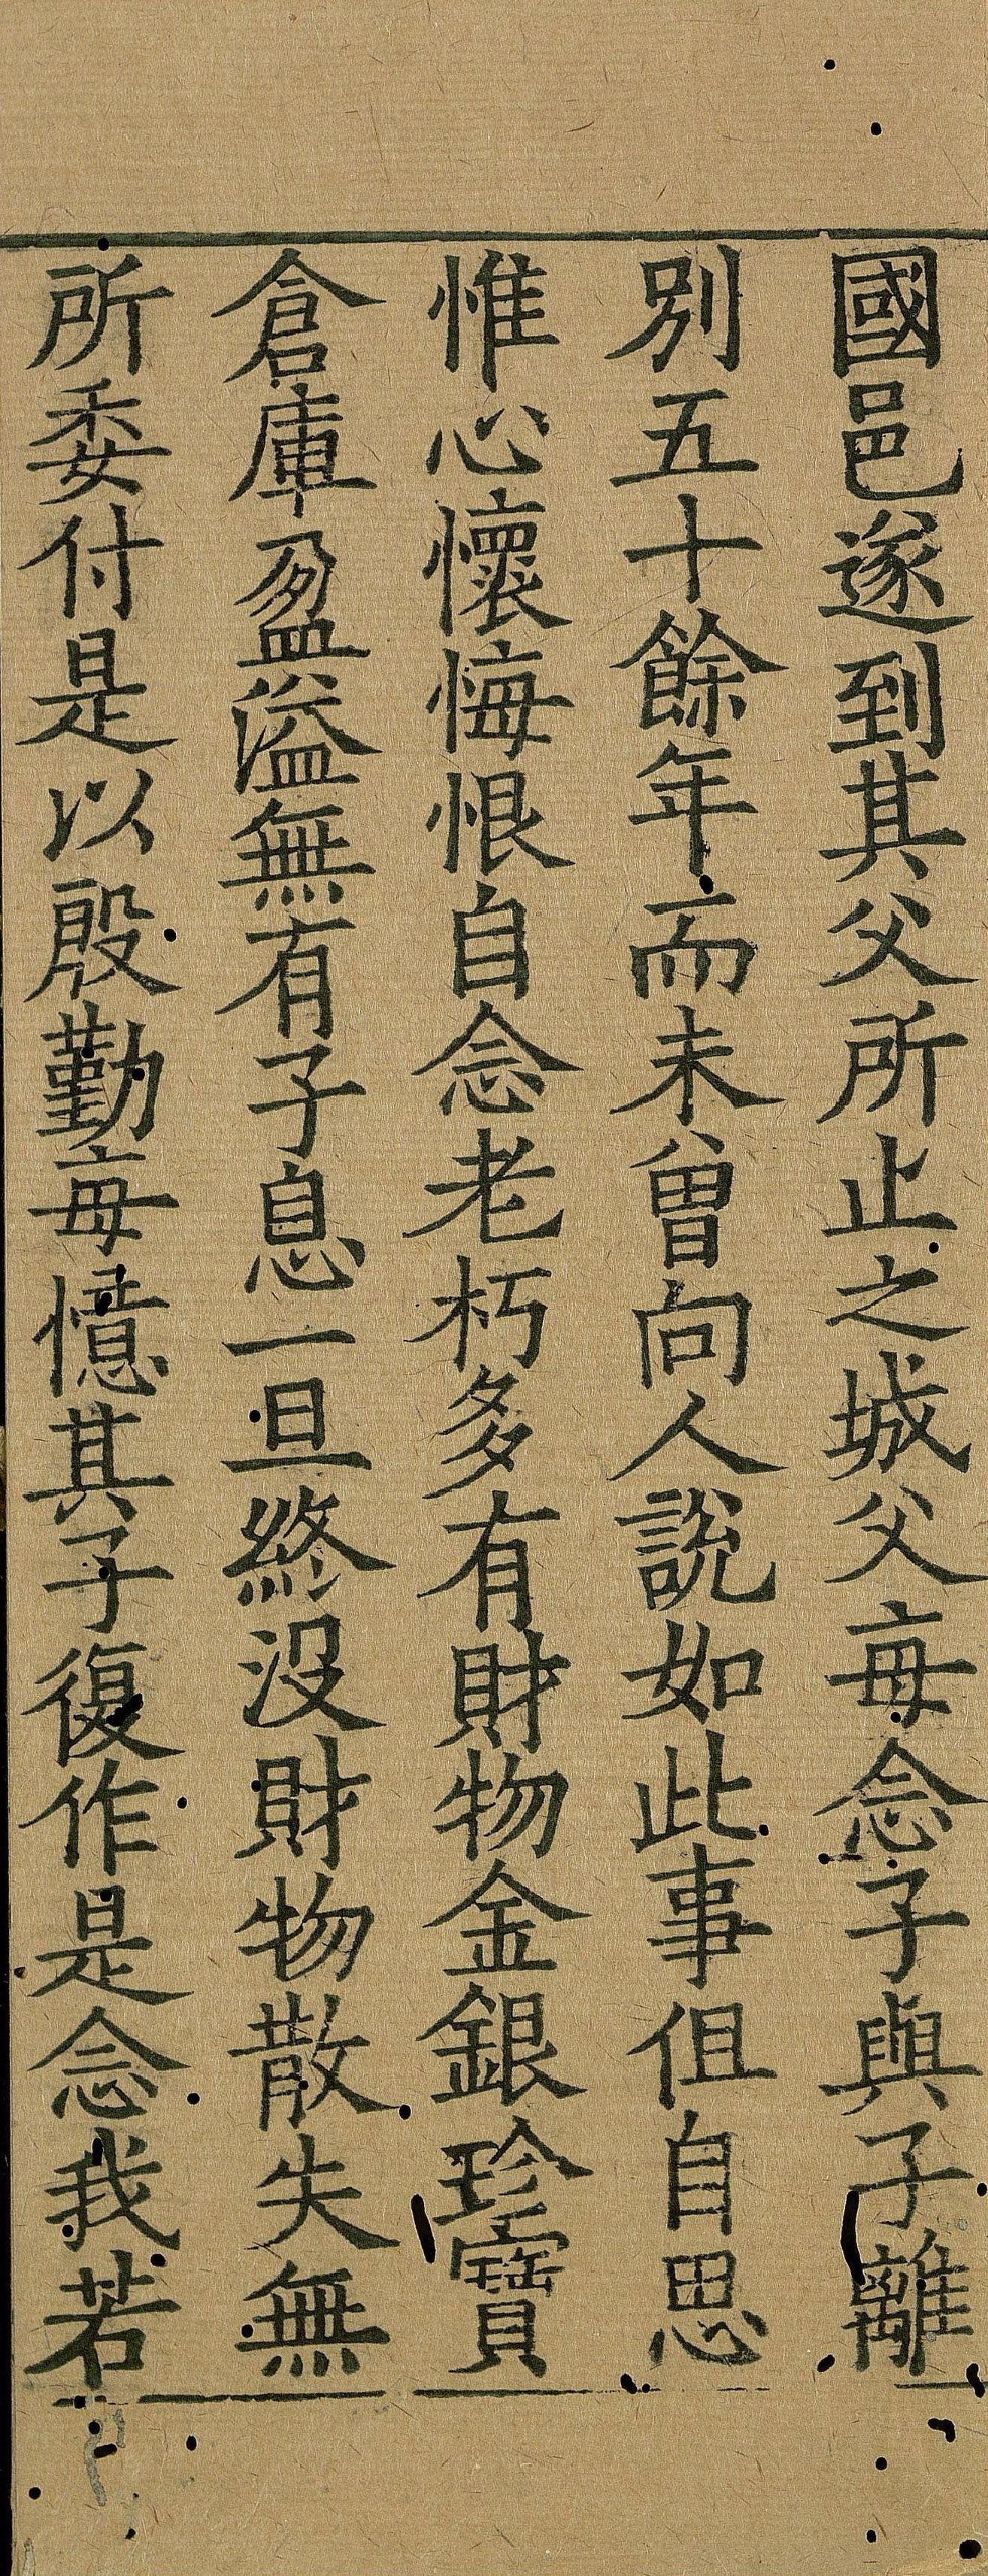 國邑遂到其父所止之城父母念子與子離
別五十餘年而未曾向人說如此事但自思
惟心懷悔恨自念老朽多有財物金銀珍寶
倉庫盈溢無有子息一旦終沒財物散失無
所委付是以殷勤每憶其子復作是念我若